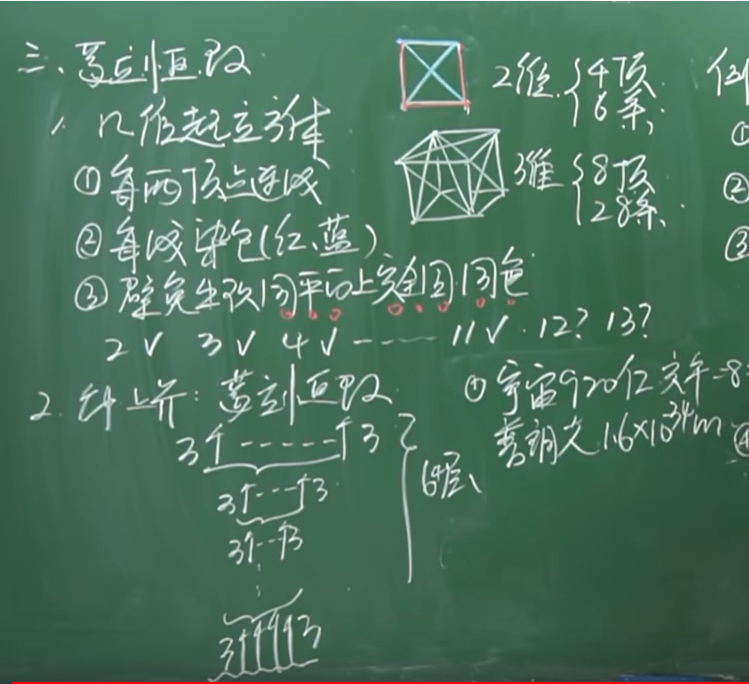 三、葛立恒数
1. n维超立方体
2维 {4顶 6条
① 每两顶点连线
3维 {8顶 28条
② 每线染色(红、蓝)
③ 避免出现同平面上完全图同色
2√ 3√ 4√ ------ 11√. 12? 13?
2. 针上开: 葛立恒数
① 宇宙920亿光年
普朗克 1.6×10³⁴m
3↑------↑3
3↑---↑3
64层
3↑--↑3
3↑↑↑↑3
例
①
②
③
④